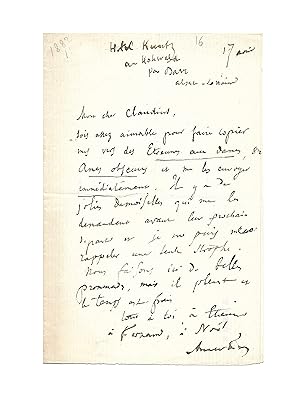 1897
16
17 août
Hotel Kuntz
au Hohwald
par Barr
alsace-Lorraine
Mon cher Claudius,
sois assez aimable pour faire copier
mes vers des Etrennes aux dames, de
Anes obscurs et me les envoyer
immédiatement. Il y a de
jolies demoiselles qui me les
demandent avant leur prochain
départ et je ne puis me
rappeler une seule strophe.
Nous faisons ici de belles
promenades, mais il pleut et
le temps est frais
tout à toi à
à Fernand, à Noël